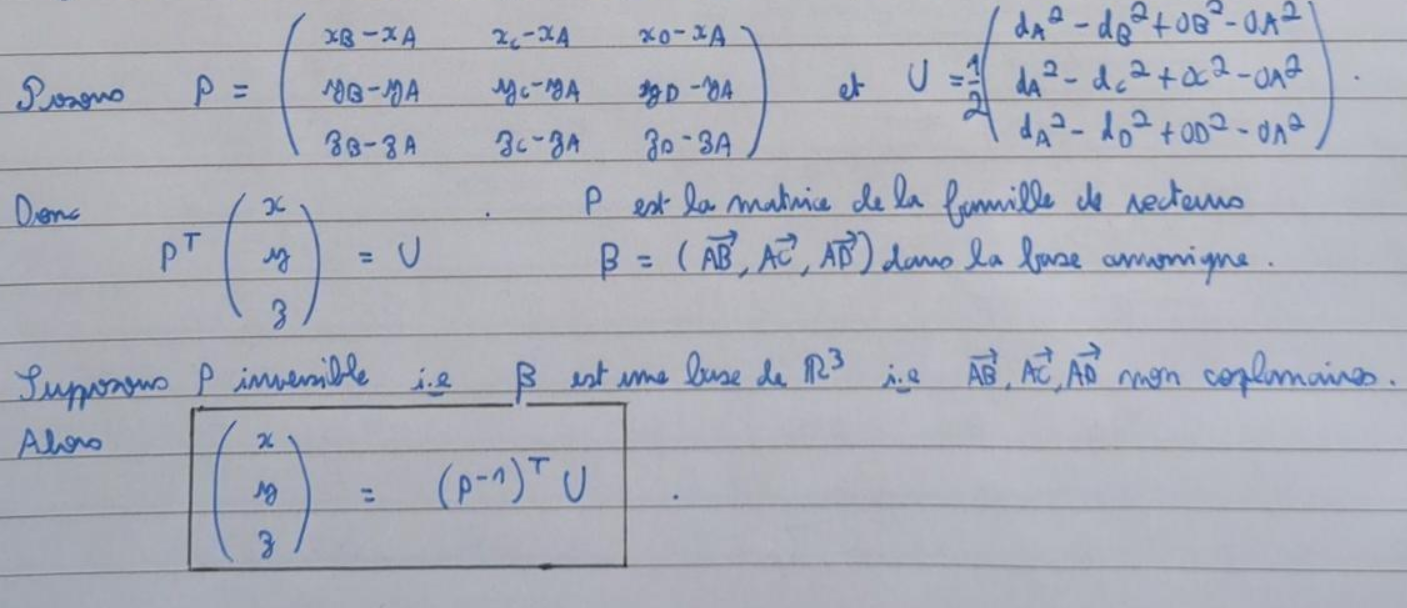 Posons P = ( xB-xA xC-xA xD-xA ; yB-yA yC-yA yD-yA ; zB-zA zC-zA zD-zA ) et U = 1/2 ( dA² - dB² + OB² - OA² ; dA² - dC² + OC² - OA² ; dA² - dD² + OD² - OA² ) .
Donc P^T ( x ; y ; z ) = U . P est la matrice de la famille de vecteurs
β = (AB, AC, AD) dans la base canonique .
Supposons P inversible i.e β est une base de ℝ³ i.e AB, AC, AD non coplanaires .
Alors ( x ; y ; z ) = (P-1)^T U .